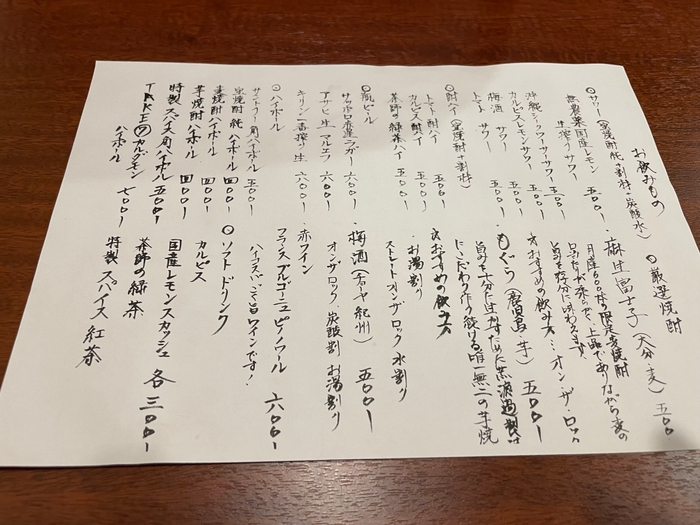 お飲みもの
○サワー(宝焼酎純+割材+炭酸水)
無農薬国産レモン
生搾りサワー 五〇〇-
沖縄シークワーサーサワー 五〇〇-
カルピスレモンサワー 五〇〇-
梅酒サワー 五〇〇-
トマトサワー 五〇〇-
○酎ハイ(宝焼酎+割材)
トマト酎ハイ 五〇〇-
カルピス酎ハイ 五〇〇-
茶師の緑茶ハイ 五〇〇-
○瓶ビール
サッポロ赤星ラガー 六〇〇-
アサヒ生マルエフ 六〇〇-
キリン一番搾り生 六〇〇-
○ハイボール
サントリー角ハイボール 五〇〇-
宝焼酎純ハイボール 四〇〇-
麦焼酎ハイボール 四〇〇-
芋焼酎ハイボール 四〇〇-
特製スパイス角ハイボール 五〇〇-
TAKEのカルダモン
ハイボール 七〇〇-
○厳選焼酎
・麻生富士子(大分・麦) 五〇〇
月産600本の限定麦焼酎
口あたりが柔らかで、上品でありながら麦の
旨みを存分に味わえます。
☆おすすめの飲み方…オン・ザ・ロック
・もぐら(鹿児島・芋) 五〇〇-
旨みを十分に生かすため荒濾過製法
にこだわり作り続ける唯一無二の芋焼
☆おすすめの飲み方
・お湯割り
ストレート オンザロック 水割り
・梅酒(石神紀州) 五〇〇-
オンザロック 炭酸割 お湯割り
・赤ワイン
フランス ブルゴーニュ ピノノワール 六〇〇-
ハイスパで旨口ワインです!
○ソフトドリンク
カルピス
国産レモンスカッシュ 各三〇〇-
茶師の緑茶
特製スパイス紅茶